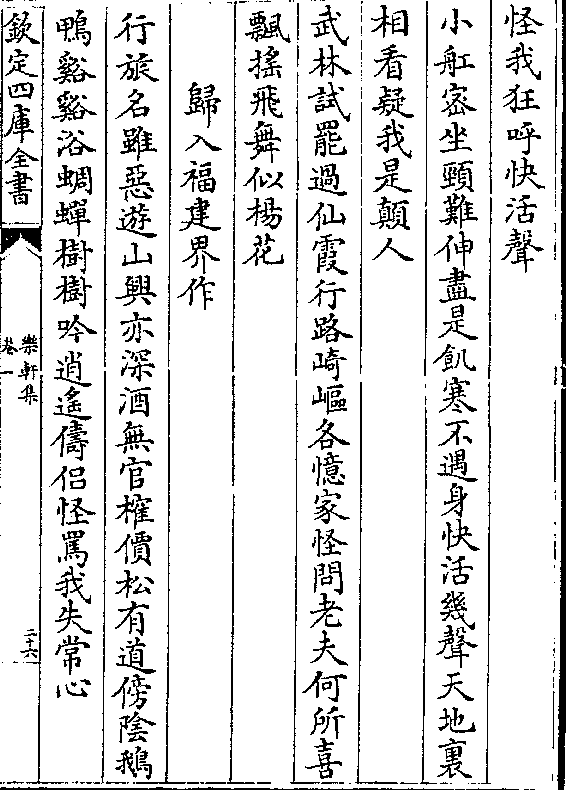 怪我狂呼快活聲
小舡密坐頸難伸盡是飢寒不遇身快活幾聲天地裏
相看疑我是顛人
武林試罷過仙霞行路崎嶇各憶家怪問老夫何所喜
飄搖飛舞似楊花
歸入福建界作
行旅名雖惡遊山興亦深酒無官榷價松有道傍陰鵝
鴨谿谿浴蜩蟬樹樹吟逍遙儔侣怪罵我失常心
欽定四庫全書
樂軒集
卷一
二十六